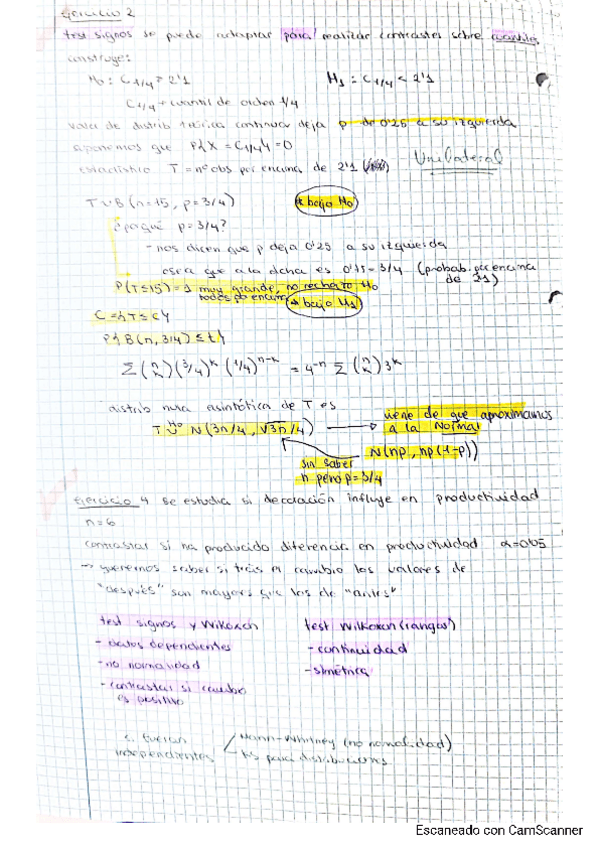 Ejercicio 2
test signos se puede adaptar para realizar contrastes sobre cuantiles
construye:
H₀: C₁/₄ = 2'1 H₁: C₁/₄ < 2'1
C₁/₄ cuantil de orden 1/4
valor de distrib teórica continua deja p de 0'25 a su izquierda
suponemos que P{X = C₁/₄} = 0
estadístico T = nº obs por encima de 2'1 Unilateral
T ~ B(n=15, p=3/4) * bajo H₀
¿por qué p=3/4?
- nos dicen que p deja 0'25 a su izquierda
osea que a la dcha es 0'75 = 3/4 (probab. por encima
de 21)
P(T≤15) = 1 muy grande, no rechazo H₀
todos por encima * bajo H₁
C = {T ≤ c}
P{B(n, 3/4) ≤ t}
Σ (n k) (3/4)^k (1/4)^n-k = 4^-n Σ (n k) 3^k
distrib nula asintótica de T es
T ~ H₀ N(3n/4, √3n/4) → viene de que aproximamos
a la Normal
N(np, np(1-p))
sin saber
n pero p=3/4
Ejercicio 4 se estudia si decoración influye en productividad
n=6
contrastar si ha producido diferencia en productividad α=0'05
→ queremos saber si trás el cambio los valores de
"después" son mayores que los de "antes"
test signos y Wilcoxon test Wilkoxon (rangos)
- datos dependientes - continuidad
- no normalidad - simétrica
- contrastar si cambio
es positivo
fueran Mann-Whitney (no normalidad)
independientes KS para distribuciones
Escaneado con CamScanner